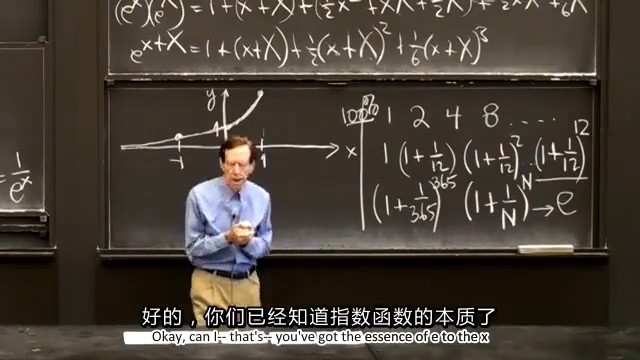 (eˣ)(eˣ) = 1 + (x + X) + (½x²
+ ½xX² + ⅙X³
e^(x+X) = 1 + (x+X) + ½(x+X)² + ⅙(x+X)³
y
100% 1 2 4 8 ....
-1 1 x
1 (1+1/12) (1+1/12)² .. (1+1/12)¹²
1/eˣ
(1+1/365)³⁶⁵ (1+1/N)ᴺ → e
好的，你们已经知道指数函数的本质了
Okay, can I-- that's-- you've got the essence of e to the x